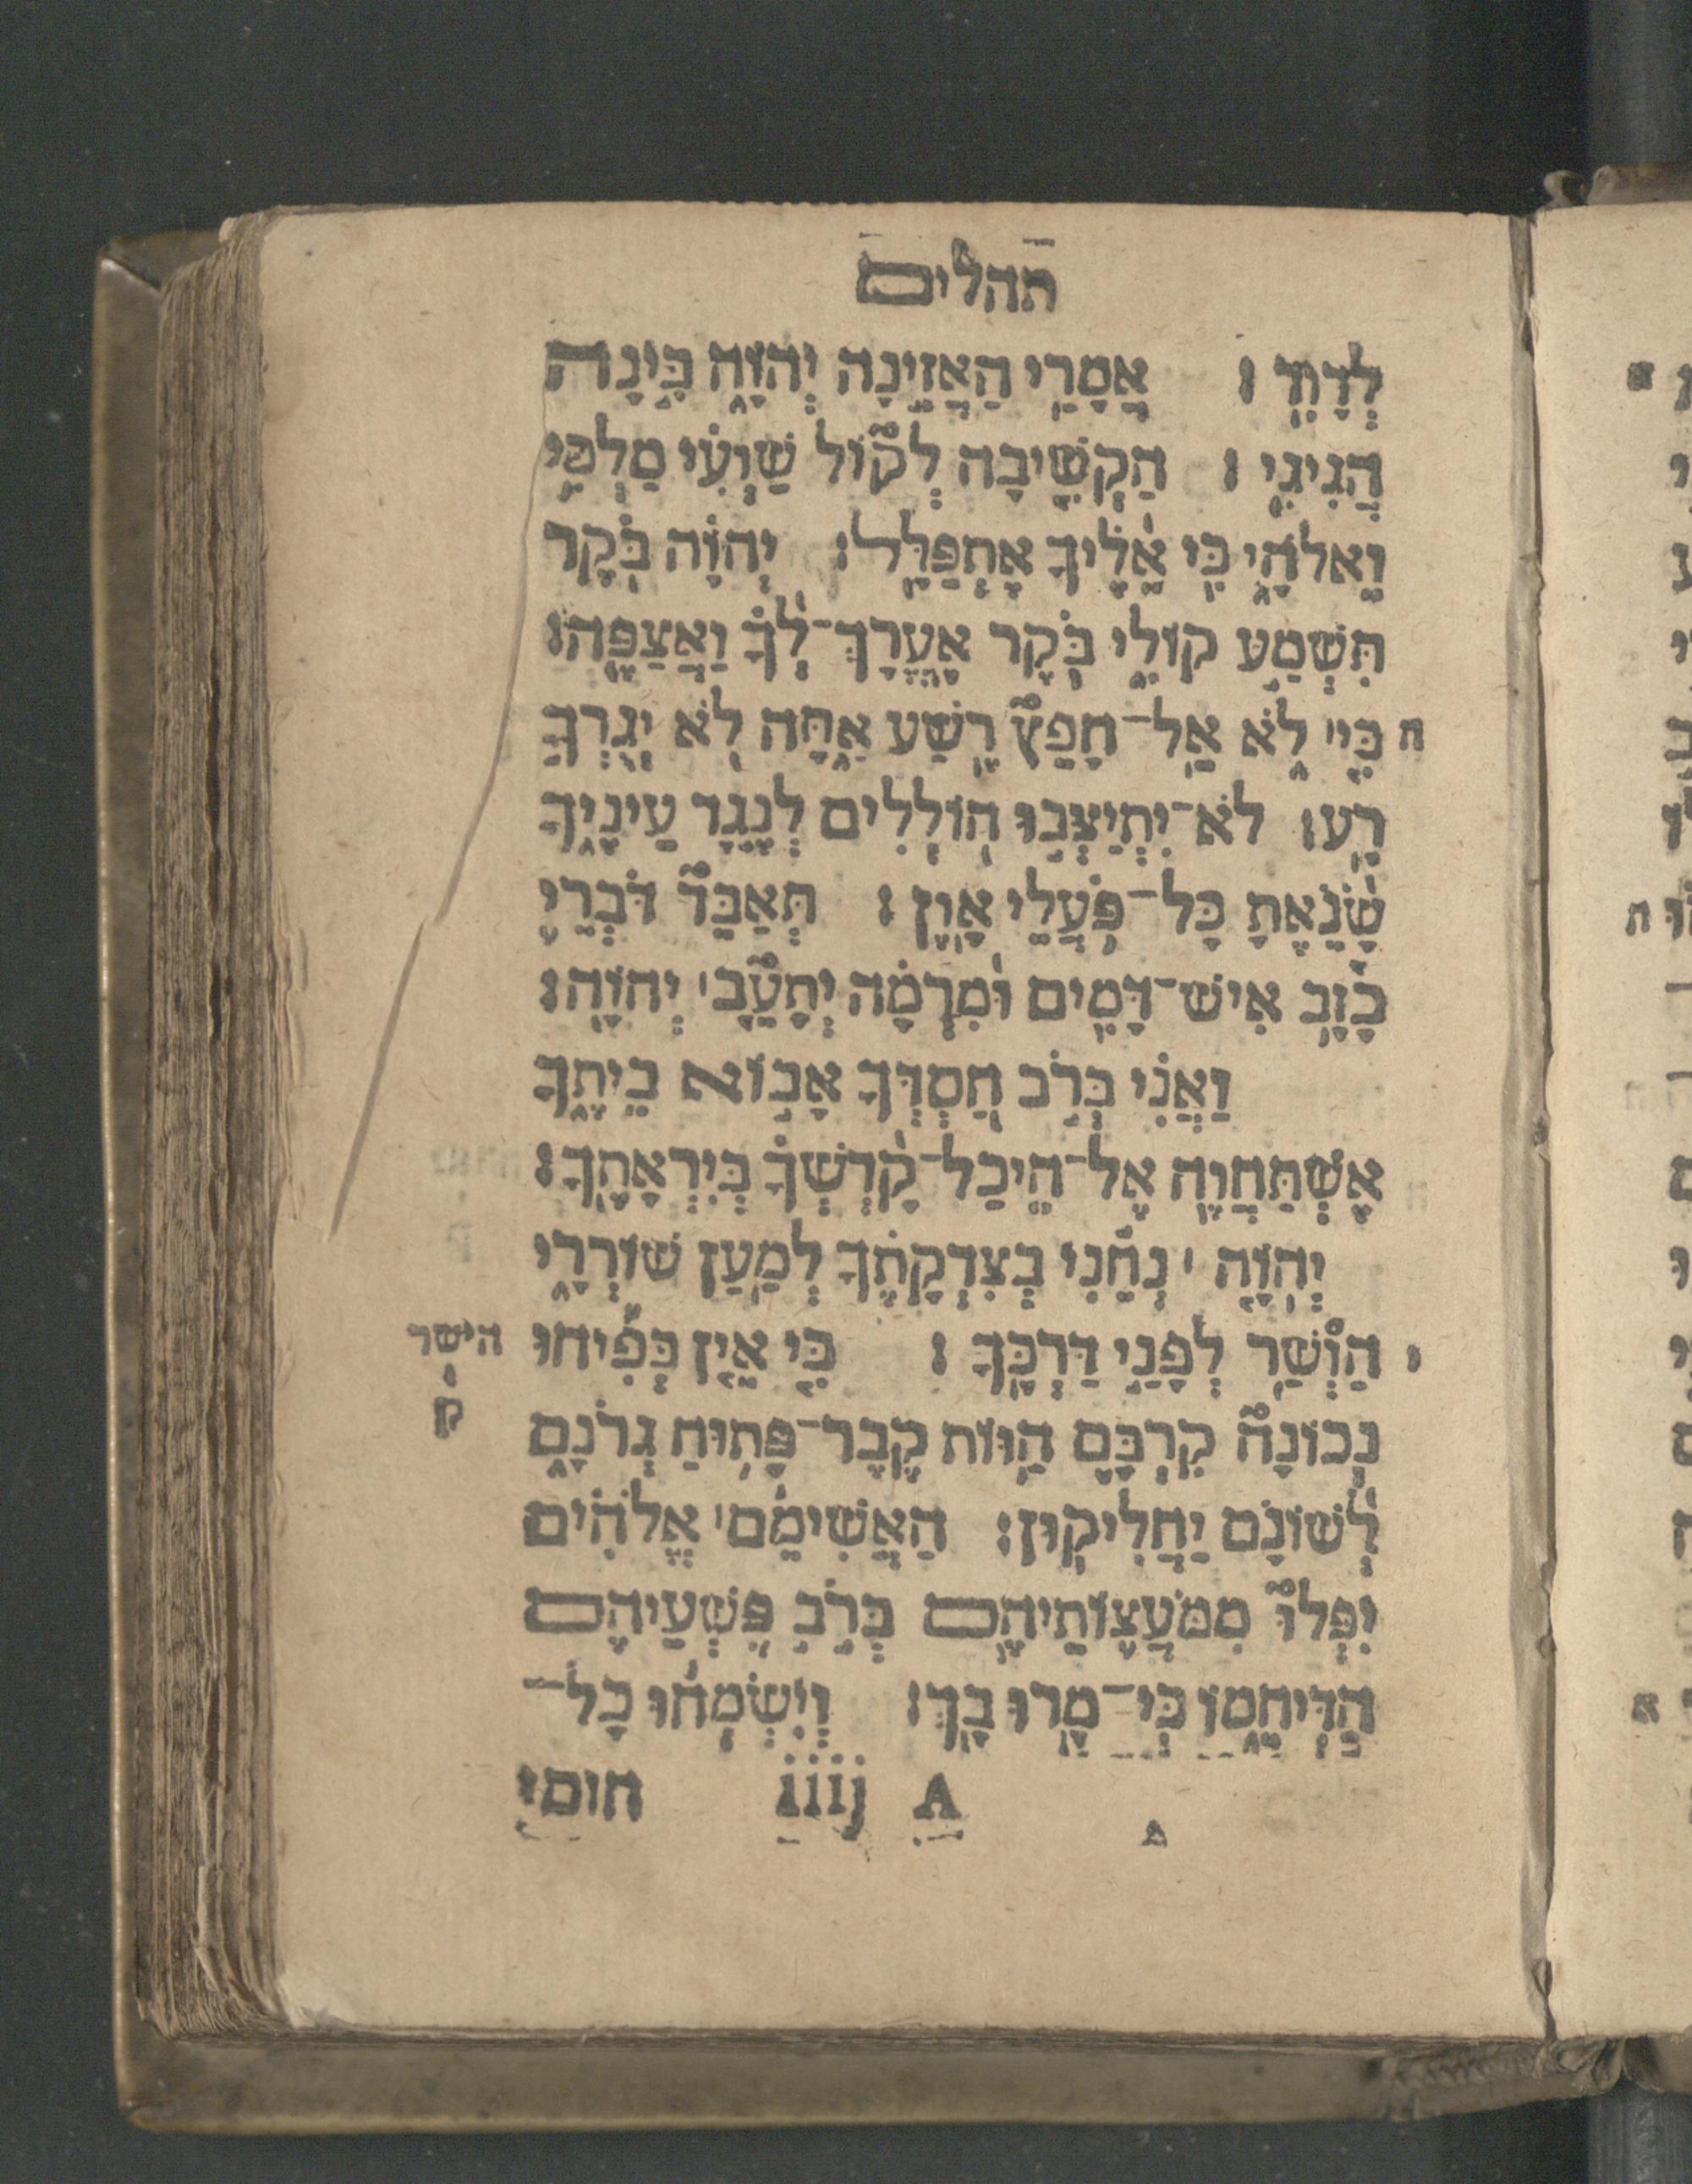 תהלים
לְדָוִֽד׃ אֲמָרַ֖י הַאֲזִ֥ינָה יְהוָ֑ה בִּ֣ינָה
הֲגִיגִֽי׃ הַקְשִׁ֤יבָה לְק֬וֹל שַׁוְעִ֗י מַלְכִּ֥י
וֵאלֹהָ֑י כִּֽי אֵ֝לֶ֗יךָ אֶתְפַּלָּֽל׃ יְהוָ֗ה בֹּ֭קֶר
תִּשְׁמַ֣ע קוֹלִ֑י בֹּ֥קֶר אֶעֱרָךְ־לְ֝ךָ֗ וַאֲצַפֶּֽה׃
ה
כִּ֤י לֹ֤א אֵֽל־חָפֵ֘ץ רֶ֥שַׁע אַ֑תָּה לֹ֖א יְגֻרְךָ֣
רָֽע׃ לֹֽא־יִתְיַצְּב֣וּ ה֖וֹלְלִים לְנֶ֣גֶד עֵינֶ֑יךָ
שָׂ֝נֵ֗אתָ כָּל־פֹּ֥עֲלֵי אָֽוֶן׃ תְּאַבֵּד֮ דֹּבְרֵ֪י
כָ֫זָ֥ב אִישׁ־דָּמִ֥ים וּמִרְמָ֗ה יְתָ֘עֵ֥ב יְהוָֽה׃
וַאֲנִ֗י בְּרֹ֣ב חַ֭סְדְּךָ אָב֣וֹא בֵיתֶ֑ךָ
אֶשְׁתַּחֲוֶ֥ה אֶל־הֵֽיכַל־קָ֝דְשְׁךָ֗ בְּיִרְאָתֶֽךָ׃
יְהוָ֤ה נְחֵ֬נִי בְצִדְקָתֶ֗ךָ לְמַ֥עַן שׁוֹרְרָ֑י
הַוְשַׁ֖ר לְפָנַ֣י דַּרְכֶּֽךָ׃ כִּ֤י אֵ֪ין בְּפִ֡יהוּ
הישר
ק
נְכוֹנָה֮ קִרְבָּ֪ם הַ֫וּ֥וֹת קֶֽבֶר־פָּת֥וּחַ גְּרֹנָ֑ם
לְ֝שׁוֹנָ֗ם יַחֲלִיקֽוּן׃ הַֽאֲשִׁימֵ֨ם אֱלֹהִ֗ים
יִפְּלוּ֮ מִֽמֹּעֲצ֪וֹתֵ֫יהֶ֥ם בְּרֹ֣ב פִּ֭שְׁעֵיהֶם
הַדִּיחֵ֑מוֹ כִּי־מָ֥רוּ בָֽךְ׃ וְיִשְׂמְח֨וּ כָל־
A iiij חוסי